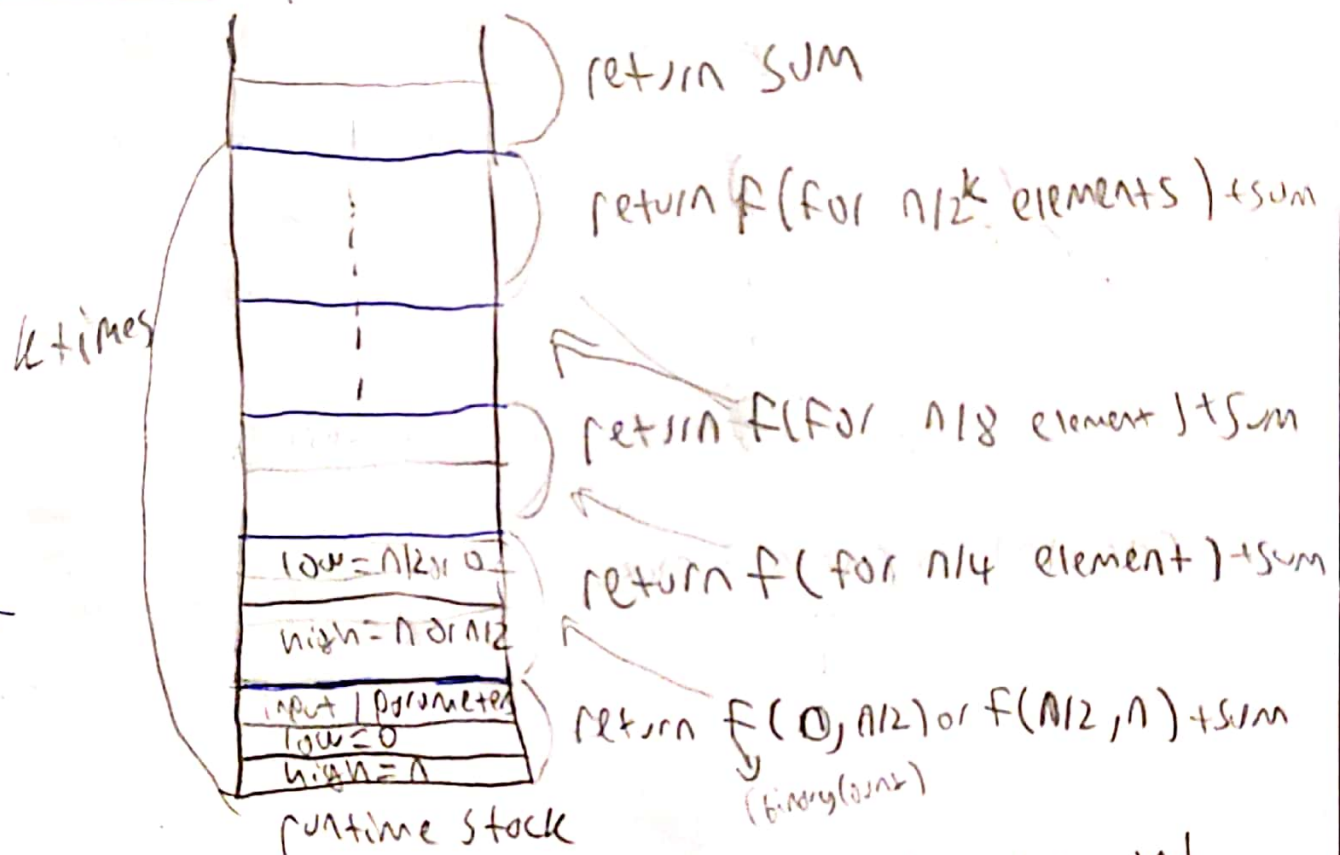 return sum
return f(for n/2^k elements) + sum
k times
return f(for n/8 element) + sum
low = n/2 or 0
return f(for n/4 element) + sum
high = n or n/2
input / parameter
return f(0, n/2) or f(n/2, n) + sum
low = 0
high = n
(binaryCount)
runtime stack